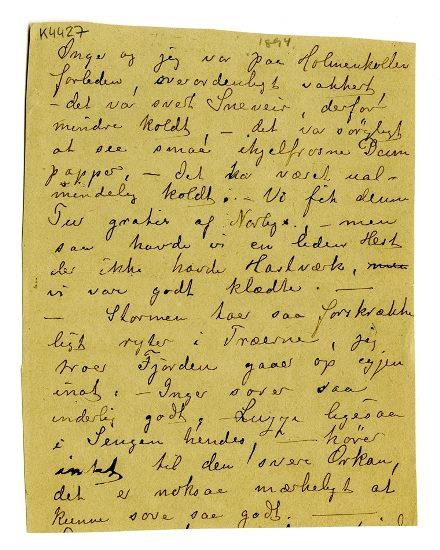 K4427
1894
Inger og jeg var paa Holmenkollen
forleden, overordenligt vakkert,
– det var svært Sneveir, derfor
mindre koldt, – det var sørgeligt
at see smaa ihjelfrosne Dom
papper, – det har været ual-
mindelig koldt. – Vi fik denne
Tur gratis af – men
saa havde vi en liden Hest
der ikke havde Hastværk,
vi var godt klædte. —
– Stormen toer saa forskrække
ligt ryter i Træerne, jeg
troer Fjorden gaaer op igjen
inat. – Inger sover saa
inderlig godt, – ligesaa
i Sengen hendes, – hører
intet til den svære Orkan,
det er noksaa mærkeligt at
kunne sove saa godt. —